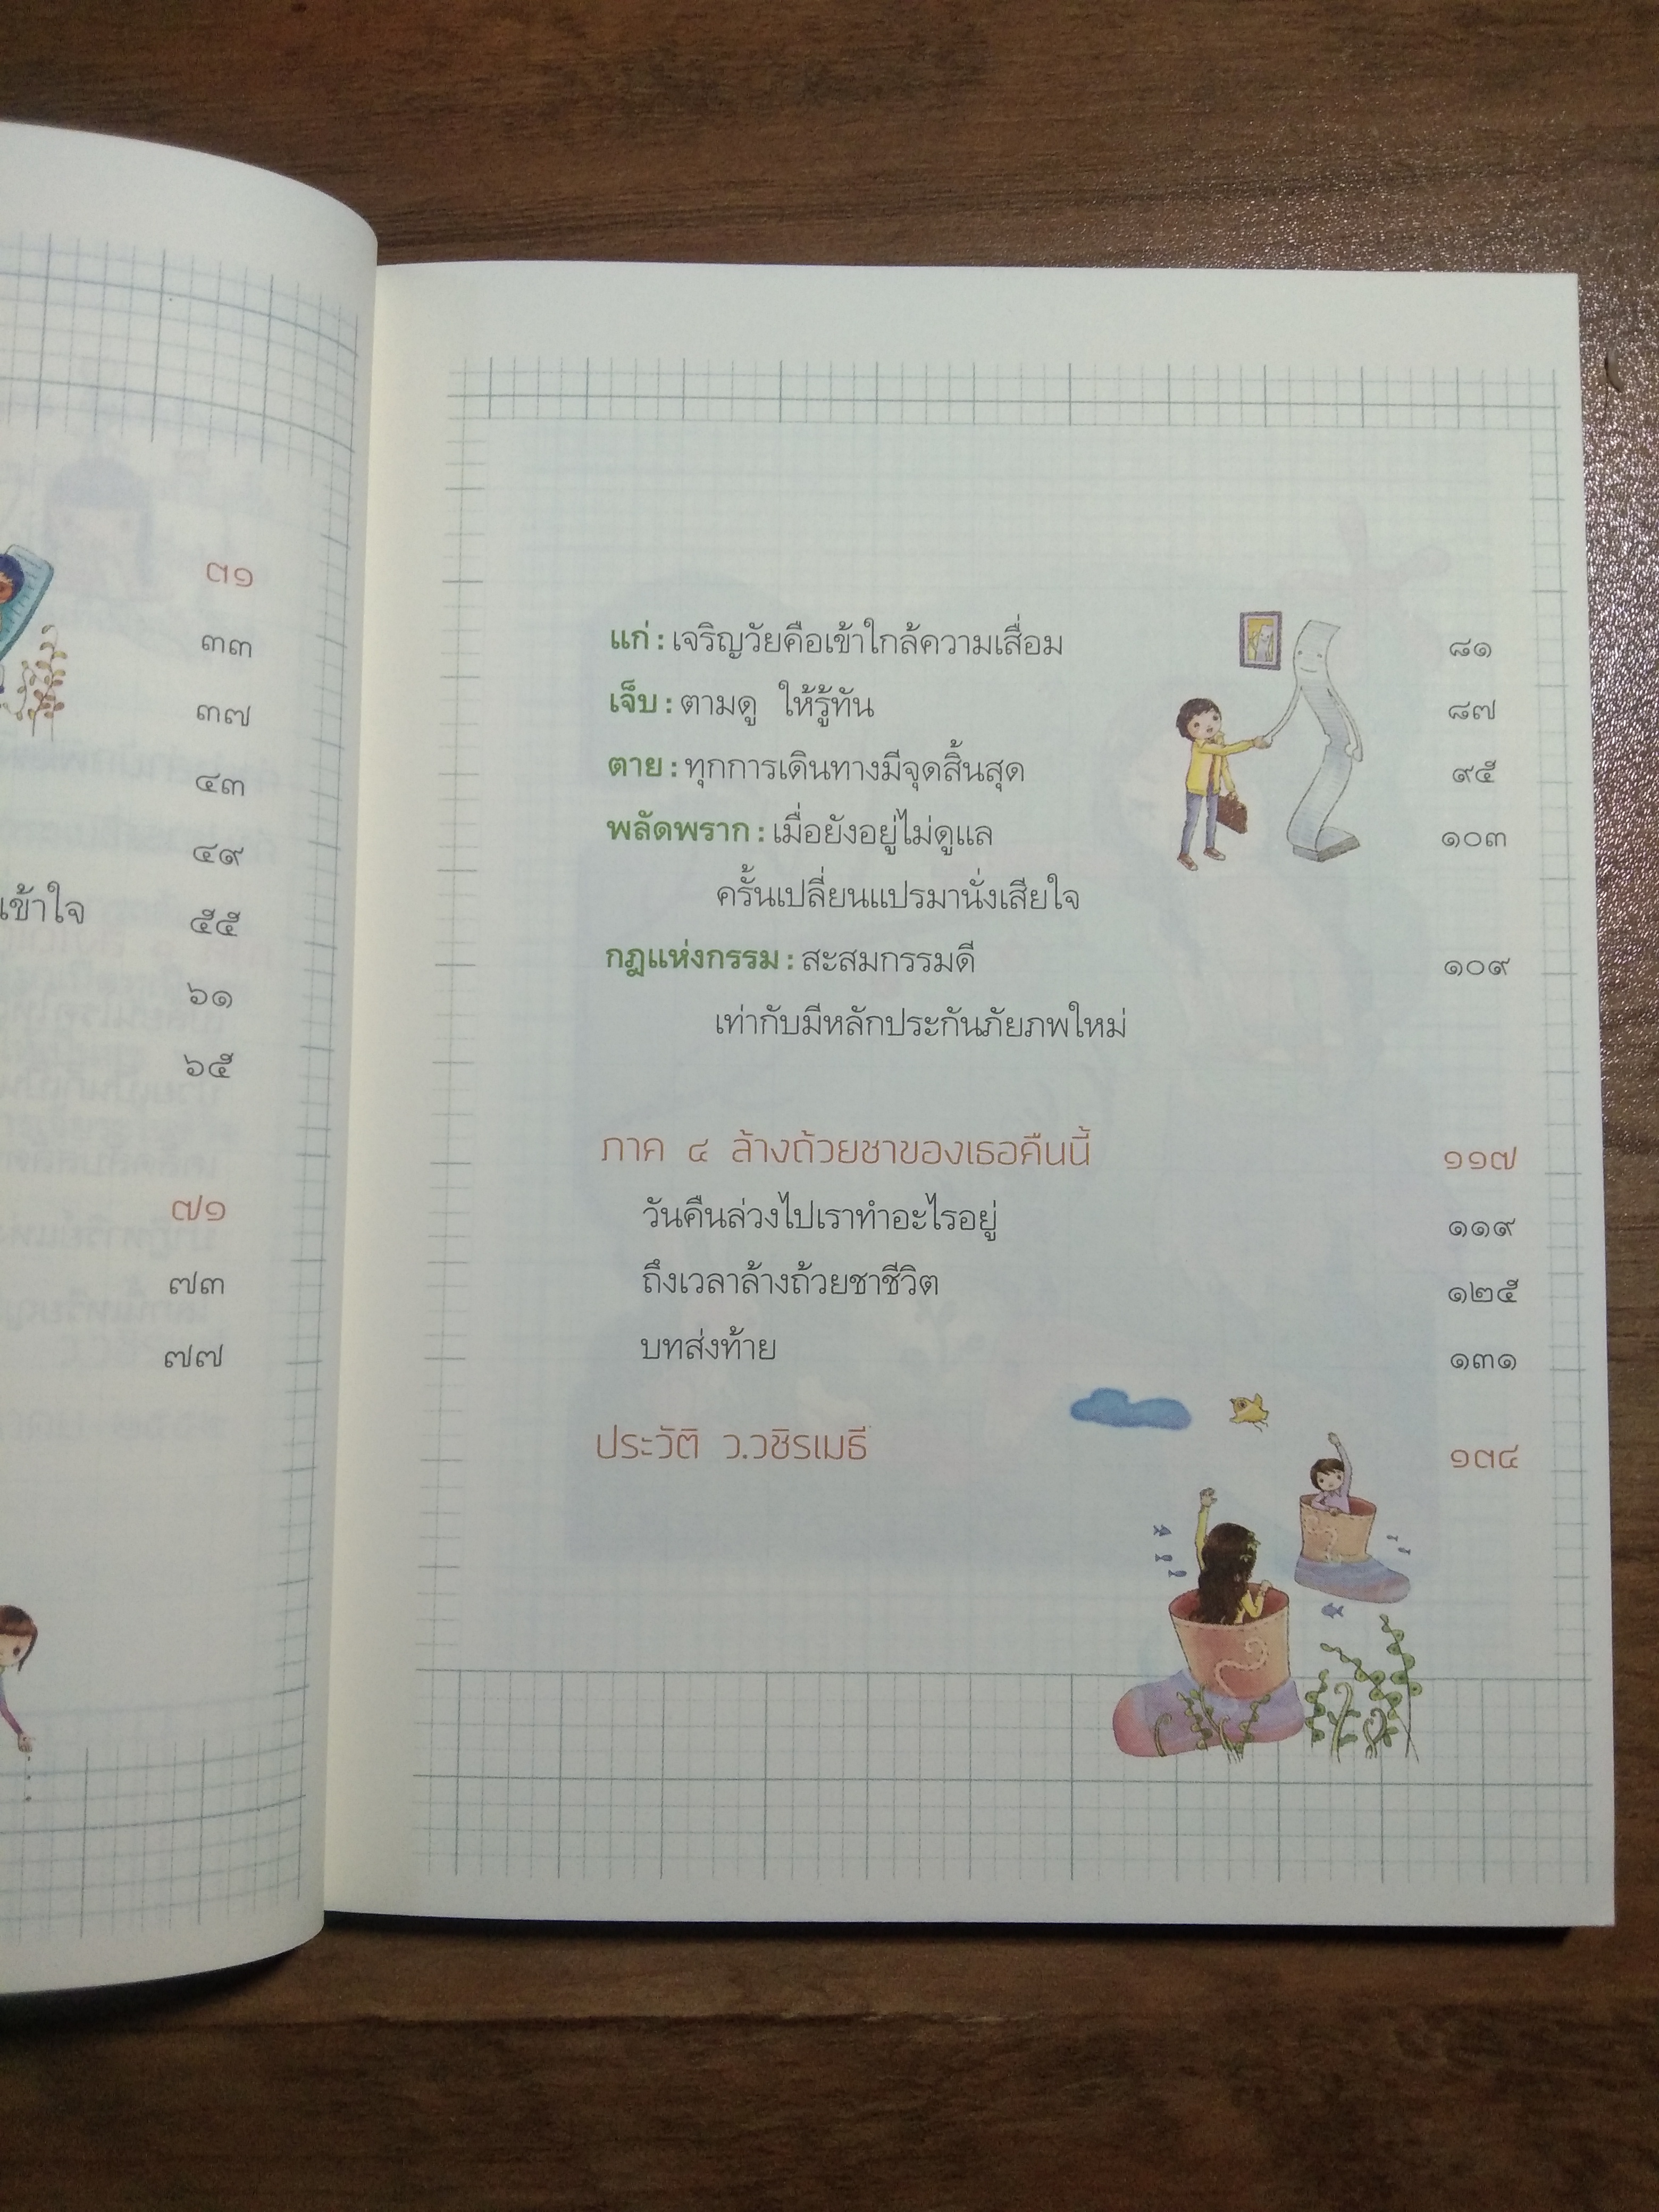 ๓๑
๓๓
๓๗
๔๓
๔๙
เข้าใจ ๕๕
๖๑
๖๕
๗๑
๗๓
๗๗
แก่ : เจริญวัยคือเข้าใกล้ความเสื่อม ๘๑
เจ็บ : ตามดู ให้รู้ทัน ๘๗
ตาย : ทุกการเดินทางมีจุดสิ้นสุด ๙๕
พลัดพราก : เมื่อยังอยู่ไม่ดูแล ๑๐๓
ครั้นเปลี่ยนแปรมานั่งเสียใจ
กฎแห่งกรรม : สะสมกรรมดี ๑๐๙
เท่ากับมีหลักประกันภัยภพใหม่
ภาค ๔ ล้างถ้วยชาของเธอคืนนี้ ๑๑๗
วันคืนล่วงไปเราทำอะไรอยู่ ๑๑๙
ถึงเวลาล้างถ้วยชาชีวิต ๑๒๕
บทส่งท้าย ๑๓๑
ประวัติ ว.วชิรเมธี ๑๓๔